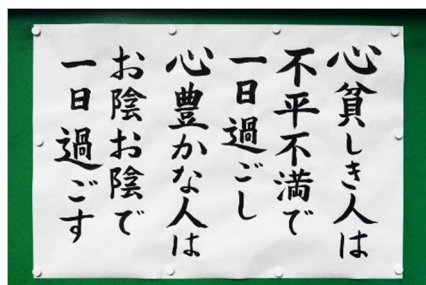 心貧しき人は
不平不満で
一日過ごし
心豊かな人は
お陰お陰で
一日過ごす